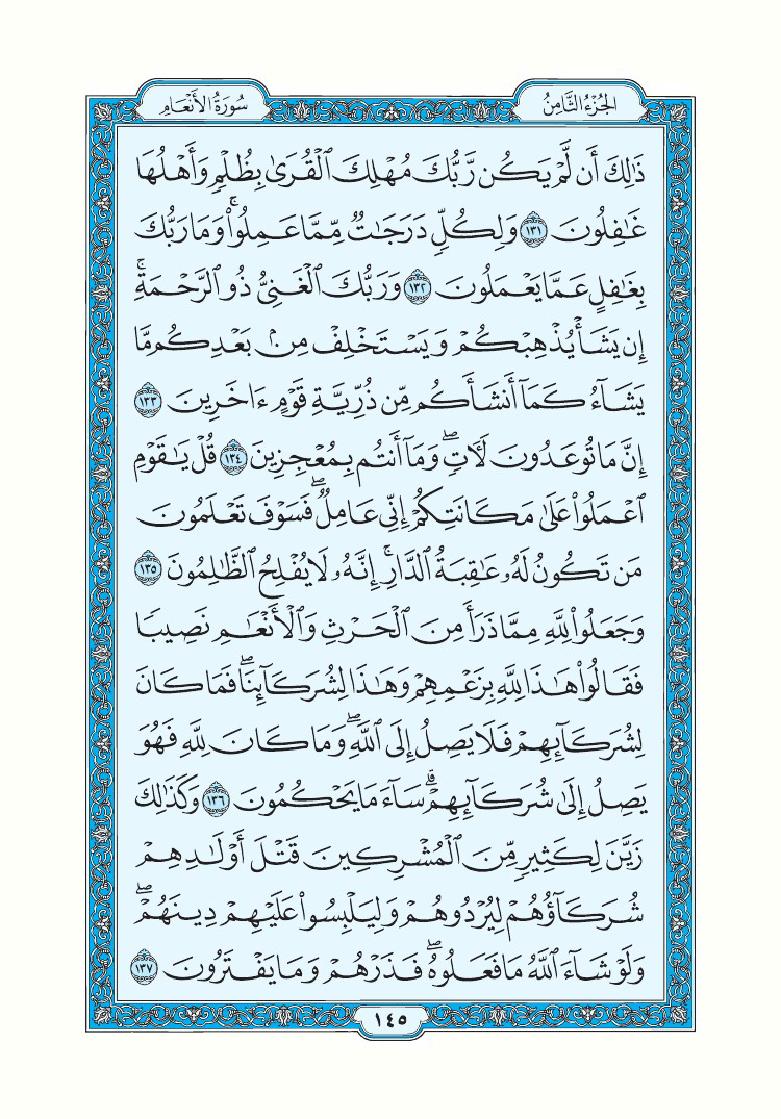 الجُزْءُ الثَّامِنُ
سُورَةُ الأَنْعَامِ
ذَٰلِكَ أَن لَّمْ يَكُن رَّبُّكَ مُهْلِكَ ٱلْقُرَىٰ بِظُلْمٍ وَأَهْلُهَا
غَٰفِلُونَ ١٣١ وَلِكُلٍّ دَرَجَٰتٌ مِّمَّا عَمِلُوا۟ ۚ وَمَا رَبُّكَ
بِغَٰفِلٍ عَمَّا يَعْمَلُونَ ١٣٢ وَرَبُّكَ ٱلْغَنِىُّ ذُو ٱلرَّحْمَةِ ۚ
إِن يَشَأْ يُذْهِبْكُمْ وَيَسْتَخْلِفْ مِنۢ بَعْدِكُم مَّا
يَشَآءُ كَمَآ أَنشَأَكُم مِّن ذُرِّيَّةِ قَوْمٍ ءَاخَرِينَ ١٣٣
إِنَّ مَا تُوعَدُونَ لَـَٔاتٍ ۖ وَمَآ أَنتُم بِمُعْجِزِينَ ١٣٤ قُلْ يَٰقَوْمِ
ٱعْمَلُوا۟ عَلَىٰ مَكَانَتِكُمْ إِنِّى عَامِلٌ ۖ فَسَوْفَ تَعْلَمُونَ
مَن تَكُونُ لَهُۥ عَٰقِبَةُ ٱلدَّارِ ۚ إِنَّهُۥ لَا يُفْلِحُ ٱلظَّٰلِمُونَ ١٣٥
وَجَعَلُوا۟ لِلَّهِ مِمَّا ذَرَأَ مِنَ ٱلْحَرْثِ وَٱلْأَنْعَٰمِ نَصِيبًا
فَقَالُوا۟ هَٰذَا لِلَّهِ بِزَعْمِهِمْ وَهَٰذَا لِشُرَكَآئِنَا ۖ فَمَا كَانَ
لِشُرَكَآئِهِمْ فَلَا يَصِلُ إِلَى ٱللَّهِ ۖ وَمَا كَانَ لِلَّهِ فَهُوَ
يَصِلُ إِلَىٰ شُرَكَآئِهِمْ ۗ سَآءَ مَا يَحْكُمُونَ ١٣٦ وَكَذَٰلِكَ
زَيَّنَ لِكَثِيرٍ مِّنَ ٱلْمُشْرِكِينَ قَتْلَ أَوْلَٰدِهِمْ
شُرَكَآؤُهُمْ لِيُرْدُوهُمْ وَلِيَلْبِسُوا۟ عَلَيْهِمْ دِينَهُمْ ۖ
وَلَوْ شَآءَ ٱللَّهُ مَا فَعَلُوهُ ۖ فَذَرْهُمْ وَمَا يَفْتَرُونَ ١٣٧
١٤٥